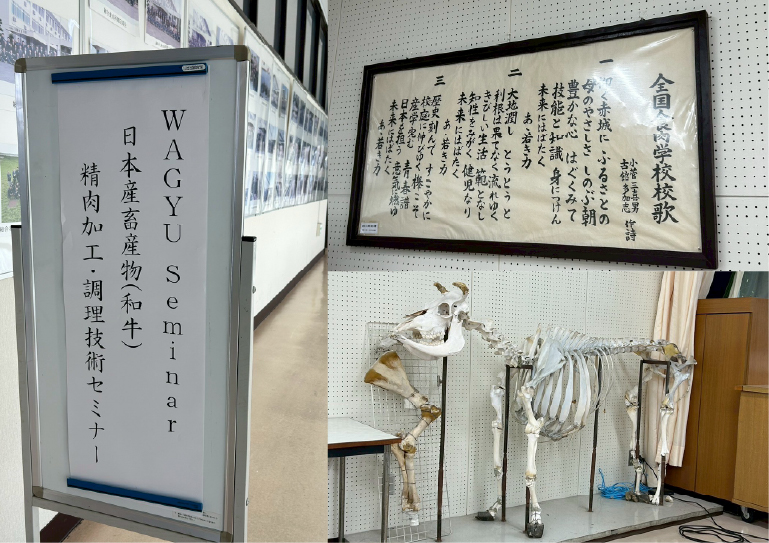 WAGYU Seminar
日本産畜産物(和牛)
精肉加工・調理技術セミナー
全国食肉学校校歌
作詩
一
く赤城に ふるさとの
母のやさしさ しのぶ朝
豊かな心 はぐくみて
技能と知識 身につけん
あゝ若き力
未来にはばたく
二
大地潤し とうとうと
利根は果てなく 流れゆく
きびしい生活 範となし
知性をみがく 健児なり
あゝ若き力
未来にはばたく
三
歴史刻んで すこやかに
校庭に伸びゆく 欅こそ
産学究む 青春譜
日本を担う 意気に燃ゆ
あゝ若き力
未来にはばたく